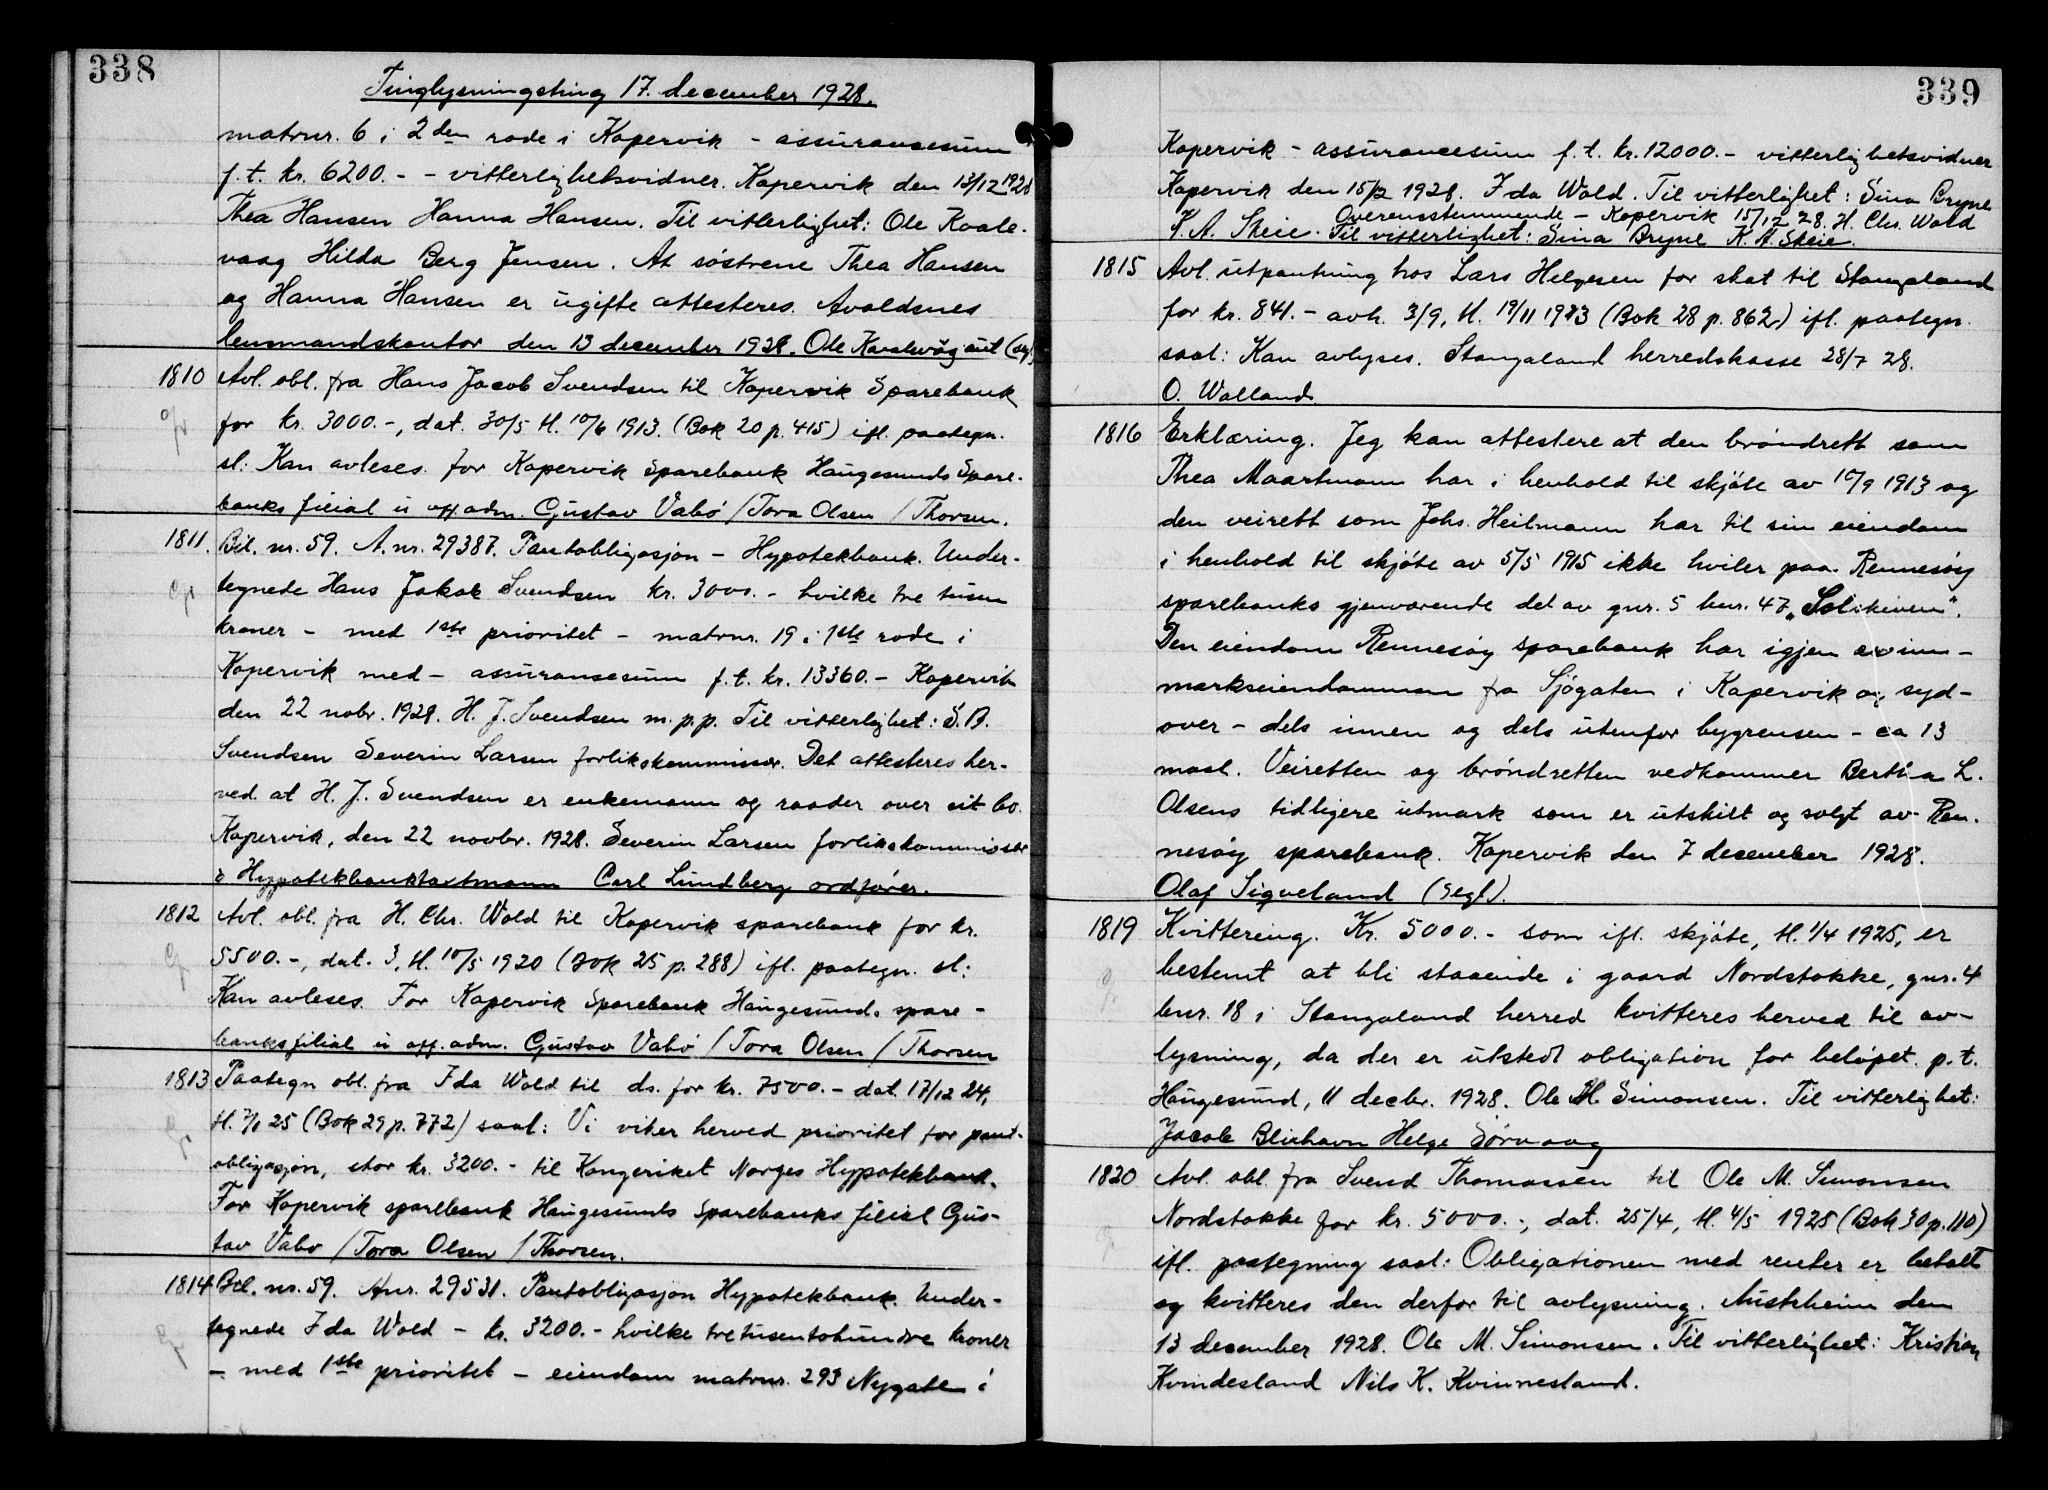 338
Tinglysningsting 17. december 1928.
matrnr. 6 i 2den rode i Kopervik - assuransesum
f.t. kr. 6200.- - vitterlighetsvidner. Kopervik den 13/12 1928
Thea Hansen Hanna Hansen. Til vitterlighet: Ole Kvale-
vaag Hilda Berg Jensen. At søstrene Thea Hansen
og Hanna Hansen er ugifte attesteres. Avaldsnes
lensmandskontor den 13 december 1928. Ole Kvalevåg aut
1810 Avl. obl. fra Hans Jacob Svendsen til Kopervik Sparebank
for kr. 3000.-, dat. 30/5 tl. 10/6 1913. (Bok 20 p. 415) ifl. paategn.
sl: Kan avleses. for Kopervik Sparebank Haugesunds Spare-
banks filial u off. adm. Gustav Vabö / Tora Olsen / Thorsen.
1811. Bil. nr. 59. A.nr. 29387. Pantobligasjon - Hypotekbank. Under-
tegnede Hans Jakob Svendsen kr. 3000.- hvilke tre tusen
kroner - med 1ste prioritet - matrnr. 19 i 1ste rode i
Kopervik med - assuransesum f.t. kr. 13360.- Kopervik
den 22 nobr. 1928. H. J. Svendsen m.p.p. Til vitterlighet: S. B.
Svendsen Severin Larsen forlikskommissær. Det attesteres her-
ved at H. J. Svendsen er enkemann og raader over sit bo.
Kopervik, den 22 novbr. 1928. Severin Larsen forlikskommissær
o Hypotekbanktakstmann Carl Lundberg ordfører.
1812 Avl. obl. fra H. Chr. Wold til Kopervik sparebank for kr.
5500.-, dat. 3, tl. 10/5 1920 (Bok 25 p. 288) ifl. paategn. sl:
Kan avleses. For Kopervik Sparebank Haugesunds spare-
banks filial u off. adm. Gustav Vabö / Tora Olsen / Thorsen
1813 Paategn obl. fra Ida Wold til ds. for kr. 7500.- dat. 17/12 24,
tl. 7/1 25 (Bok 29 p. 772) saal: Vi viker herved prioritet for pant-
obligasjon, stor kr. 3200.- til Kongeriket Norges Hypotekbank.
For Kopervik sparebank Haugesunds Sparebanks filial Gus-
tav Vabö / Tora Olsen / Thorsen.
1814 Bil. nr. 59. Anr. 29531. Pantobligasjon Hypotekbank. Under-
tegnede Ida Wold - kr. 3200.- hvilke tretusentohundre kroner
- med 1ste prioritet - eiendom matrnr. 293 Nygaten i
339
Kopervik - assurancesum f.t. kr. 12000.- vitterlighetsvidner
Kopervik den 15/12 1928. Ida Wold. Til vitterlighet: Sina Bryne
K. A. Skeie. Overensstemmende - Kopervik 15/12 28. H. Chr. Wold
Til vitterlighet: Sina Bryne K. A. Skeie.
1815 Avl. utpantning hos Lars Helgesen for skat til Stangaland
for kr. 841.- avh. 3/9, tl. 19/11 1923 (Bok 28 p. 862) ifl. paategn.
saal: Kan avlyses. Stangaland herredskasse 28/7 28.
O. Walland.
1816 Erklæring. Jeg kan attestere at den brøndrett som
Thea Maartmann har i henhold til skjøte av 10/9 1913 og
den veirett som Johs. Heilmann har til sin eiendom
i henhold til skjøte av 5/5 1915 ikke hviler paa Rennesøy
sparebanks gjenværende del av gnr. 5 bnr. 47
Den eiendom Rennesøy sparebank har igjen er inn-
markseiendommen fra Sjøgaten i Kopervik og syd-
over - dels innen og dels utenfor bygrensen - ca 13
maal. Veiretten og brøndretten vedkommer Bertha L.
Olsens tidligere utmark som er utskilt og solgt av Ren-
nesøy sparebank. Kopervik den 7 december 1928.
Olaf Sigveland (Segl).
1819 Kvittering. Kr. 5000.- som ifl. skjøte, tl. 1/4 1925, er
bestemt at bli staaende i gaard Nordstokke, gnr. 4
bnr. 18 i Stangaland herred kvitteres herved til av-
lysning, da der er utstedt obligation for beløpet. p.t.
Haugesund, 11 decbr. 1928. Ole M. Simonsen. Til vitterlighet:
Jacob Blixhavn Helge Sørvaag
1820 Avl. obl. fra Svend Thomassen til Ole M. Simonsen
Nordstokke for kr. 5000.-, dat. 25/4, tl. 4/5 1925 (Bok 30 p. 110)
ifl. paategning saal: Obligationen med renter er betalt
og kvitteres den derfor til avlysning. Austrheim den
13 december 1928. Ole M. Simonsen. Til vitterlighet: Kristian
Kvindesland Nils K. Kvinnesland.